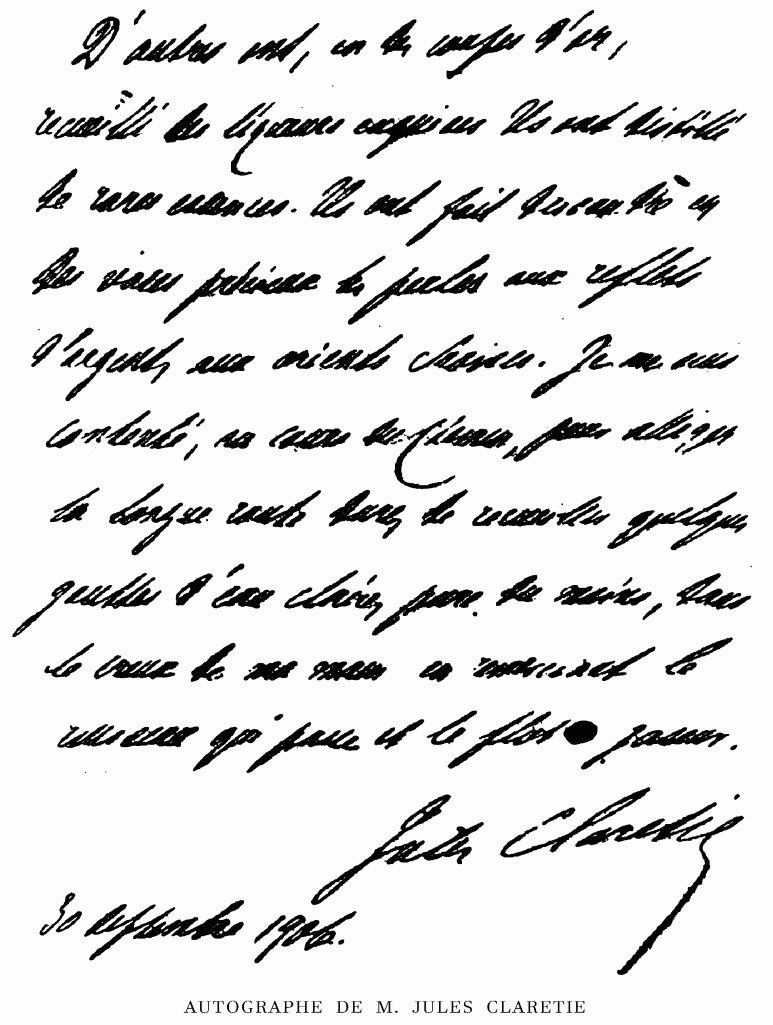 D'autres ont, en des coupes d'or,
recueilli des liqueurs exquises Ils ont distillé
de rares essences. Ils ont fait descendre en
des vases précieux des perles aux reflets
d'argent, aux orients choisis. Je me suis
contenté, au cours du chemin, pour alléger
la longue route dure, de recueillir quelques
gouttes d'eau claire, pure du moins, dans
le creux de ma main en remerciant le
ruisseau qui passe et le flot
Jules Claretie
30 septembre 1906.
AUTOGRAPHE DE M. JULES CLARETIE